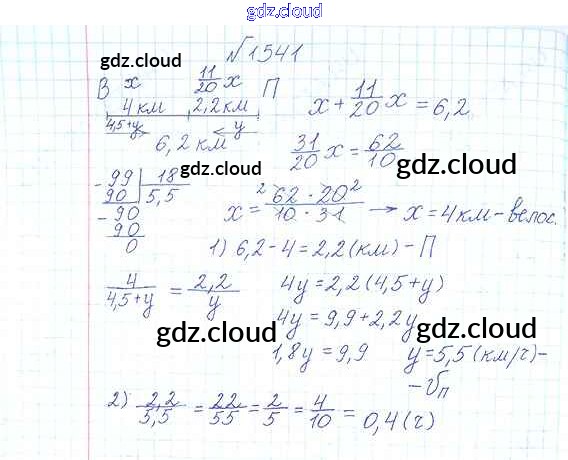 gdz.cloud
№1541
gdz.cloud
В x 11/20 x П
4 км 2,2 км
4,5+y y
6,2 км
x + 11/20 x = 6,2
31/20 x = 62/10
gdz.cloud
gdz.cloud
99 | 18
90 | 5,5
- 90
90
0
x = 62 · 20 / 10 · 31 → x = 4 км - велос.
2 2
1) 6,2 - 4 = 2,2 (км) - П
4 / 4,5+y = 2,2 / y
4y = 2,2 (4,5 + y)
4y = 9,9 + 2,2y
gdz.cloud
gdz.cloud
1,8y = 9,9 y = 5,5 (км/ч) -
- Vп
2) 2,2 / 5,5 = 22 / 55 = 2 / 5 = 4 / 10 = 0,4 (ч)
gdz.cloud
gdz.cloud